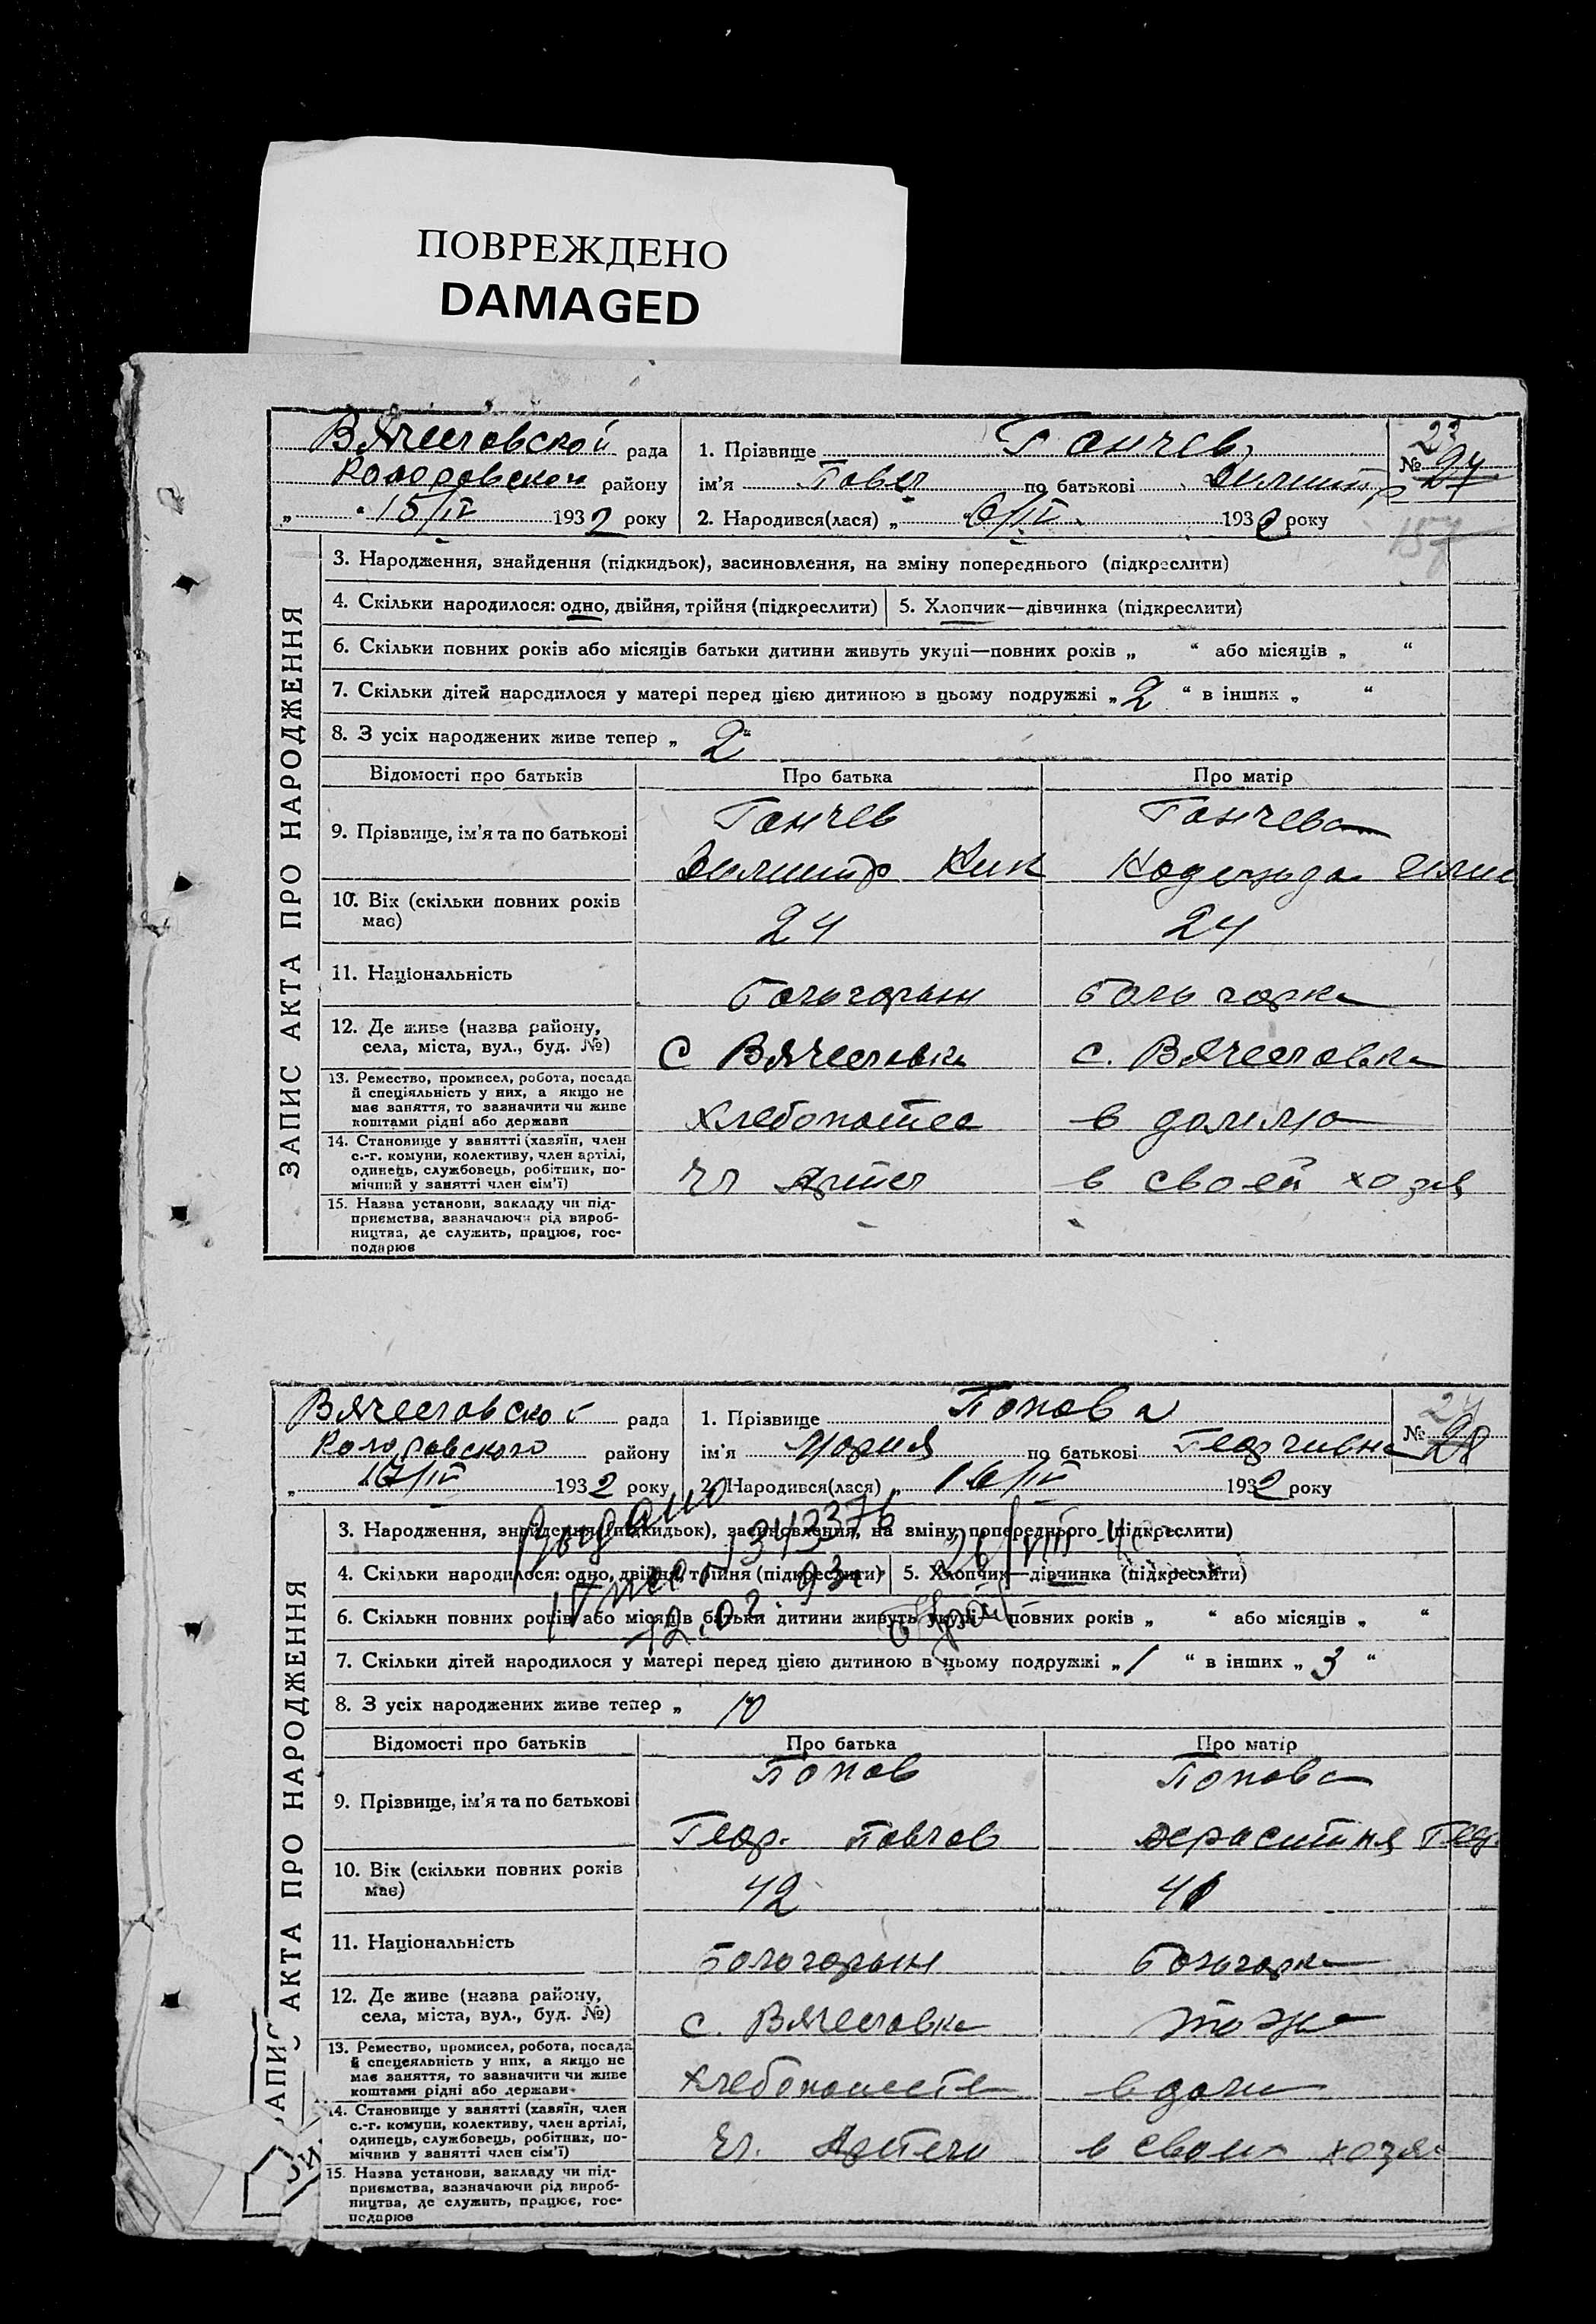 ПОВРЕЖДЕНО
DAMAGED
Вячеславской рада
района району
„ “ 15/IV 1932 року
1. Прізвище Ганчев
ім’я Павел по батькові Димитр
2. Народився(лася) „ 6/IV 1932 року
23
№ 24
157
ЗАПИС АКТА ПРО НАРОДЖЕННЯ
3. Народження, знайдення (підкидьок), засиновлення, на зміну попереднього (підкреслити)
4. Скільки народилося: одно, двійня, трійня (підкреслити) 5. Хлопчик—дівчинка (підкреслити)
6. Скільки повних років або місяців батьки дитини живуть укупі—повних років „ “ або місяців „ “
7. Скільки дітей народилося у матері перед цією дитиною в цьому подружжі „ 2 “ в інших „ “
8. З усіх народжених живе тепер „ 2“
Відомості про батьків Про батька Про матір
9. Прізвище, ім’я та по батькові
Ганчев Ганчева
Димитр Ник Надежда
10. Вік (скільки повних років має)
24 24
11. Національність
Бальгарын Бальгарка
12. Де живе (назва району, села, міста, вул., буд. №)
С Вячеславка с. Вячеславка
13. Ремество, промисел, робота, посада
й спеціяльність у них, а якщо не
має заняття, то зазначити чи живе
коштами рідні або держави
Хлебопашес в домаш
14. Становище у занятті (хазяїн, член
с.-г. комуни, колективу, член артілі,
одинець, службовець, робітник, по-
мічний у занятті член сім’ї)
Чл Артел в своей хозяй
15. Назва установи, закладу чи під-
приємства, зазначаючи рід вироб-
ництва, де служить, працює, гос-
подарює
Вячеславской рада
Коларовского району
„ 17/IV 1932 року
1. Прізвище Попова
ім’я Мария по батькові Георгиевна
2. Народився(лася) „ 16/IV 1932 року
24
№ 28
ЗАПИС АКТА ПРО НАРОДЖЕННЯ
3. Народження, знайдення (підкидьок), засиновлення, на зміну попереднього (підкреслити)
Выдано 343376
4. Скільки народилося: одно, двійня, трійня (підкреслити) 5. Хлопчик—дівчинка (підкреслити)
6. Скільки повних років або місяців батьки дитини живуть укупі—повних років „ “ або місяців „ “
7. Скільки дітей народилося у матері перед цією дитиною в цьому подружжі „ 1 “ в інших „ 3 “
8. З усіх народжених живе тепер „ 10
Відомості про батьків Про батька Про матір
9. Прізвище, ім’я та по батькові
Попов Попова
Геор. Павлов Герасимия Геор.
10. Вік (скільки повних років має)
42 41
11. Національність
Бальгарын Бальгарка
12. Де живе (назва району, села, міста, вул., буд. №)
с. Вячеславка тоже
13. Ремество, промисел, робота, посада
й спецеяльність у них, а якщо не
має заняття, то зазначити чи живе
коштами рідні або держави
Хлебопашеств в дома
14. Становище у занятті (хазяїн, член
с.-г. комуни, колективу, член артілі,
одинець, службовець, робітник, по-
мічний у занятті член сім’ї)
Чл. Артели в своих хозяй
15. Назва установи, закладу чи під-
приємства, зазначаючи рід вироб-
ництва, де служить, працює, гос-
подарює